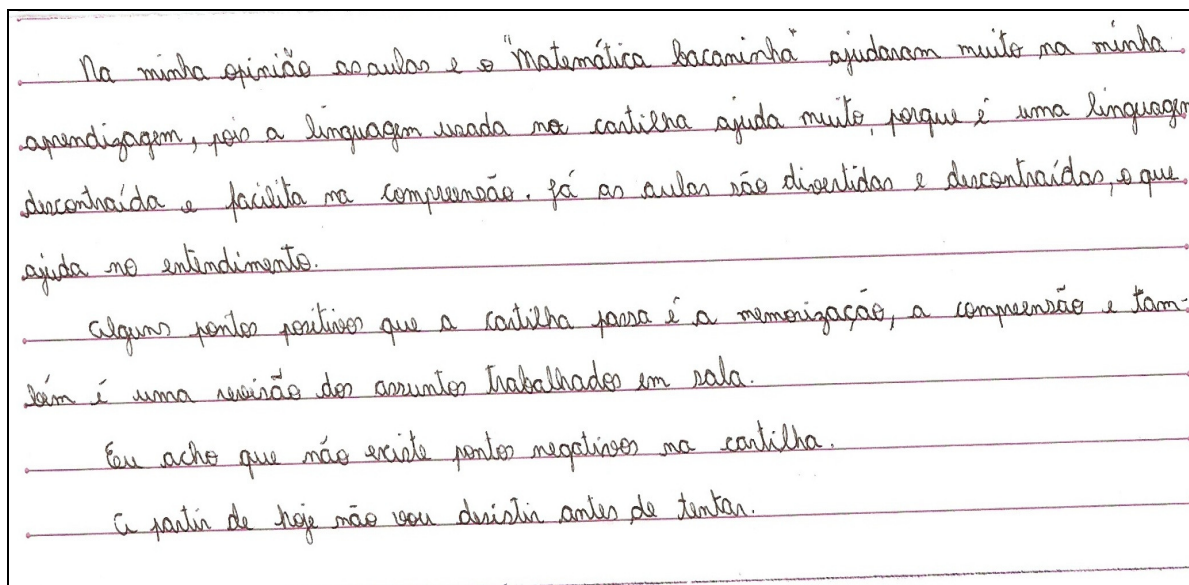 Na minha opinião as aulas e o "Matemática bacaninha" ajudaram muito na minha
aprendizagem, pois a linguagem usada na cartilha ajuda muito, porque é uma linguagem
descontraída e facilita na compreensão. Já as aulas são divertidas e descontraídas, o que
ajuda no entendimento.
Alguns pontos positivos que a cartilha passa é a memorização, a compreensão e tam-
bém é uma revisão dos assuntos trabalhados em sala.
Eu acho que não existe pontos negativos na cartilha.
A partir de hoje não vou desistir antes de tentar.